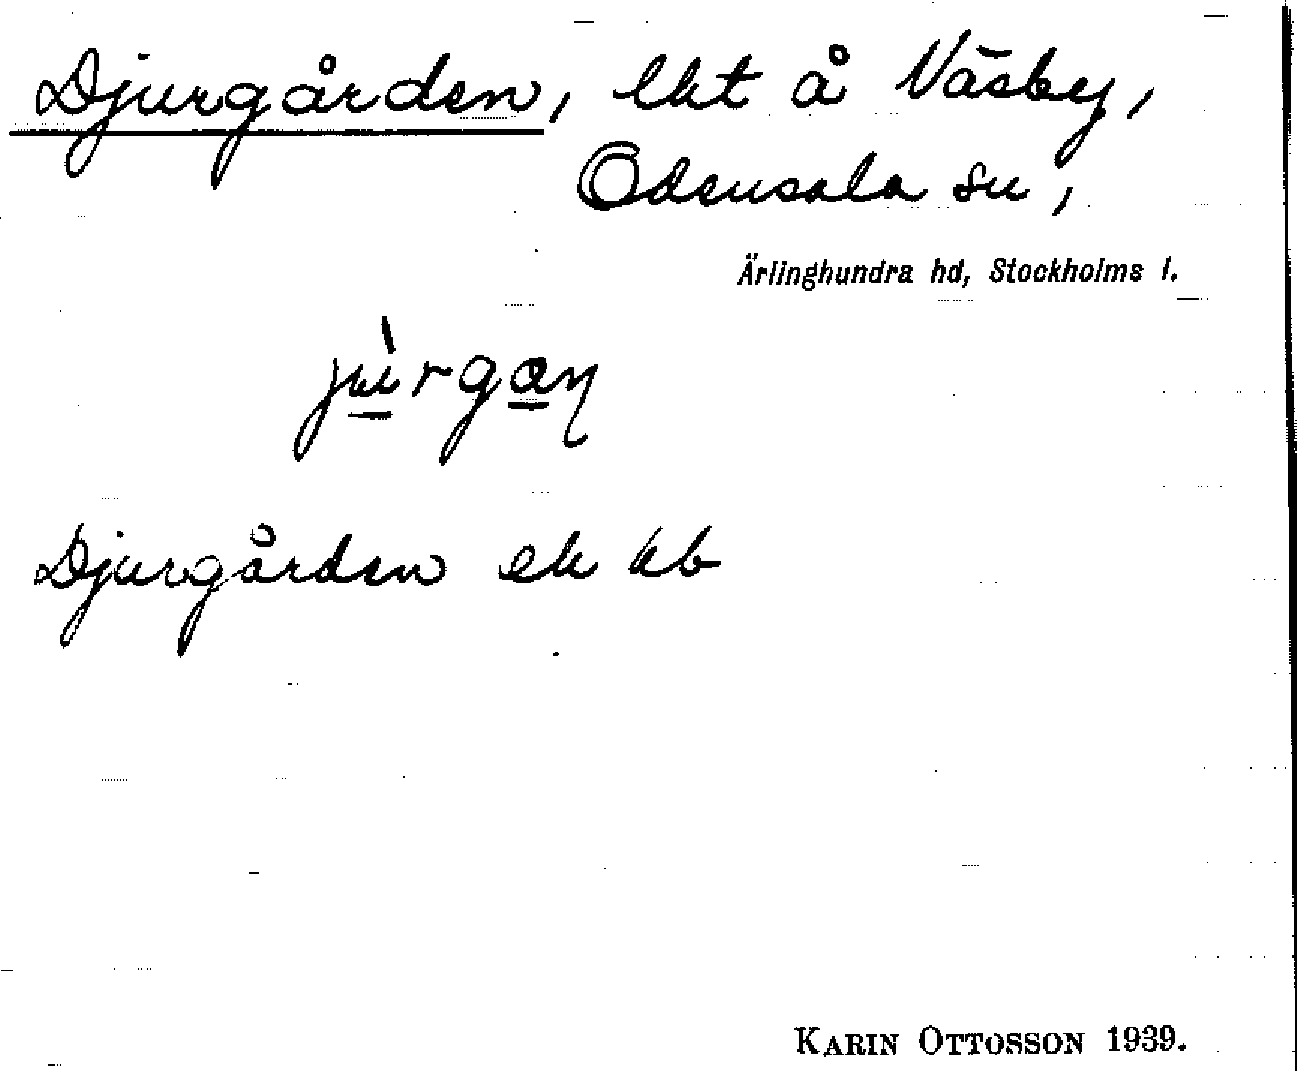 Djurgården, lht å Väsby,
Odensala sn,
Ärlinghundra hd, Stockholms l.
jùrgaṇ
Djurgården ek kb
KARIN OTTOSSON 1939.